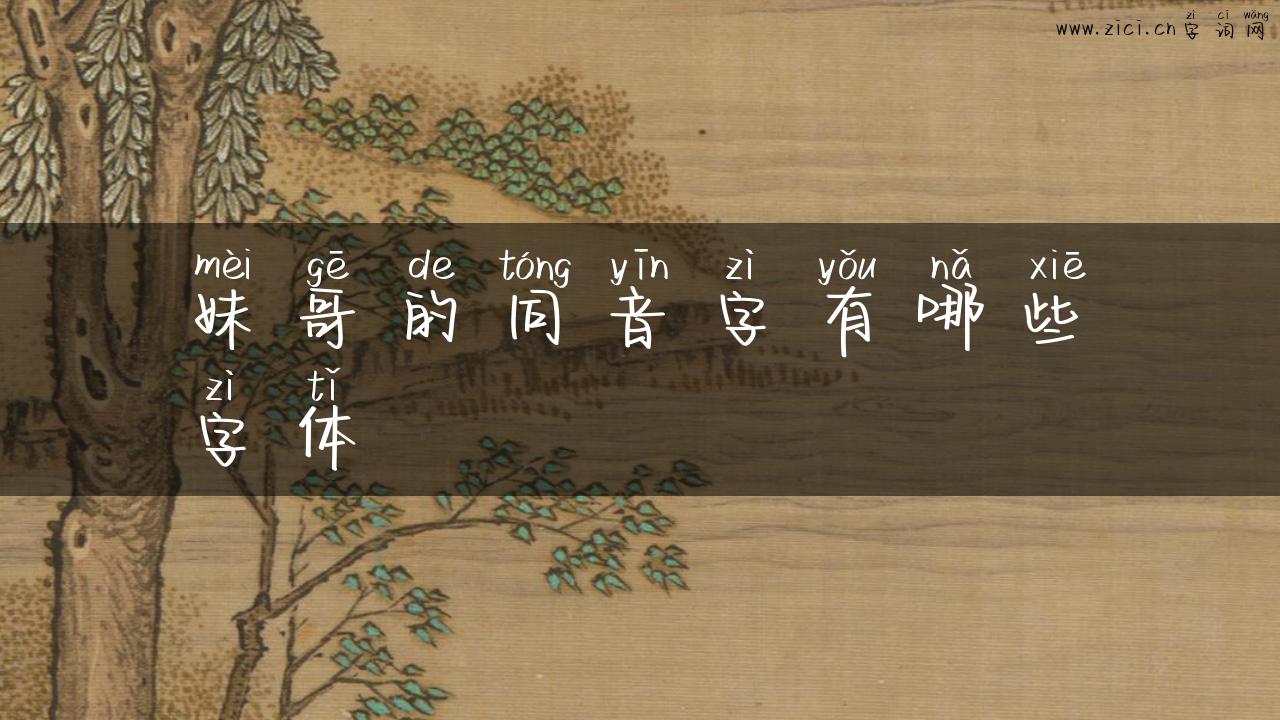 zì cí wǎng
www.zici.cn 字词网
mèi gē de tóng yīn zì yǒu nǎ xiē
妹哥的同音字有哪些
zì tǐ
字体